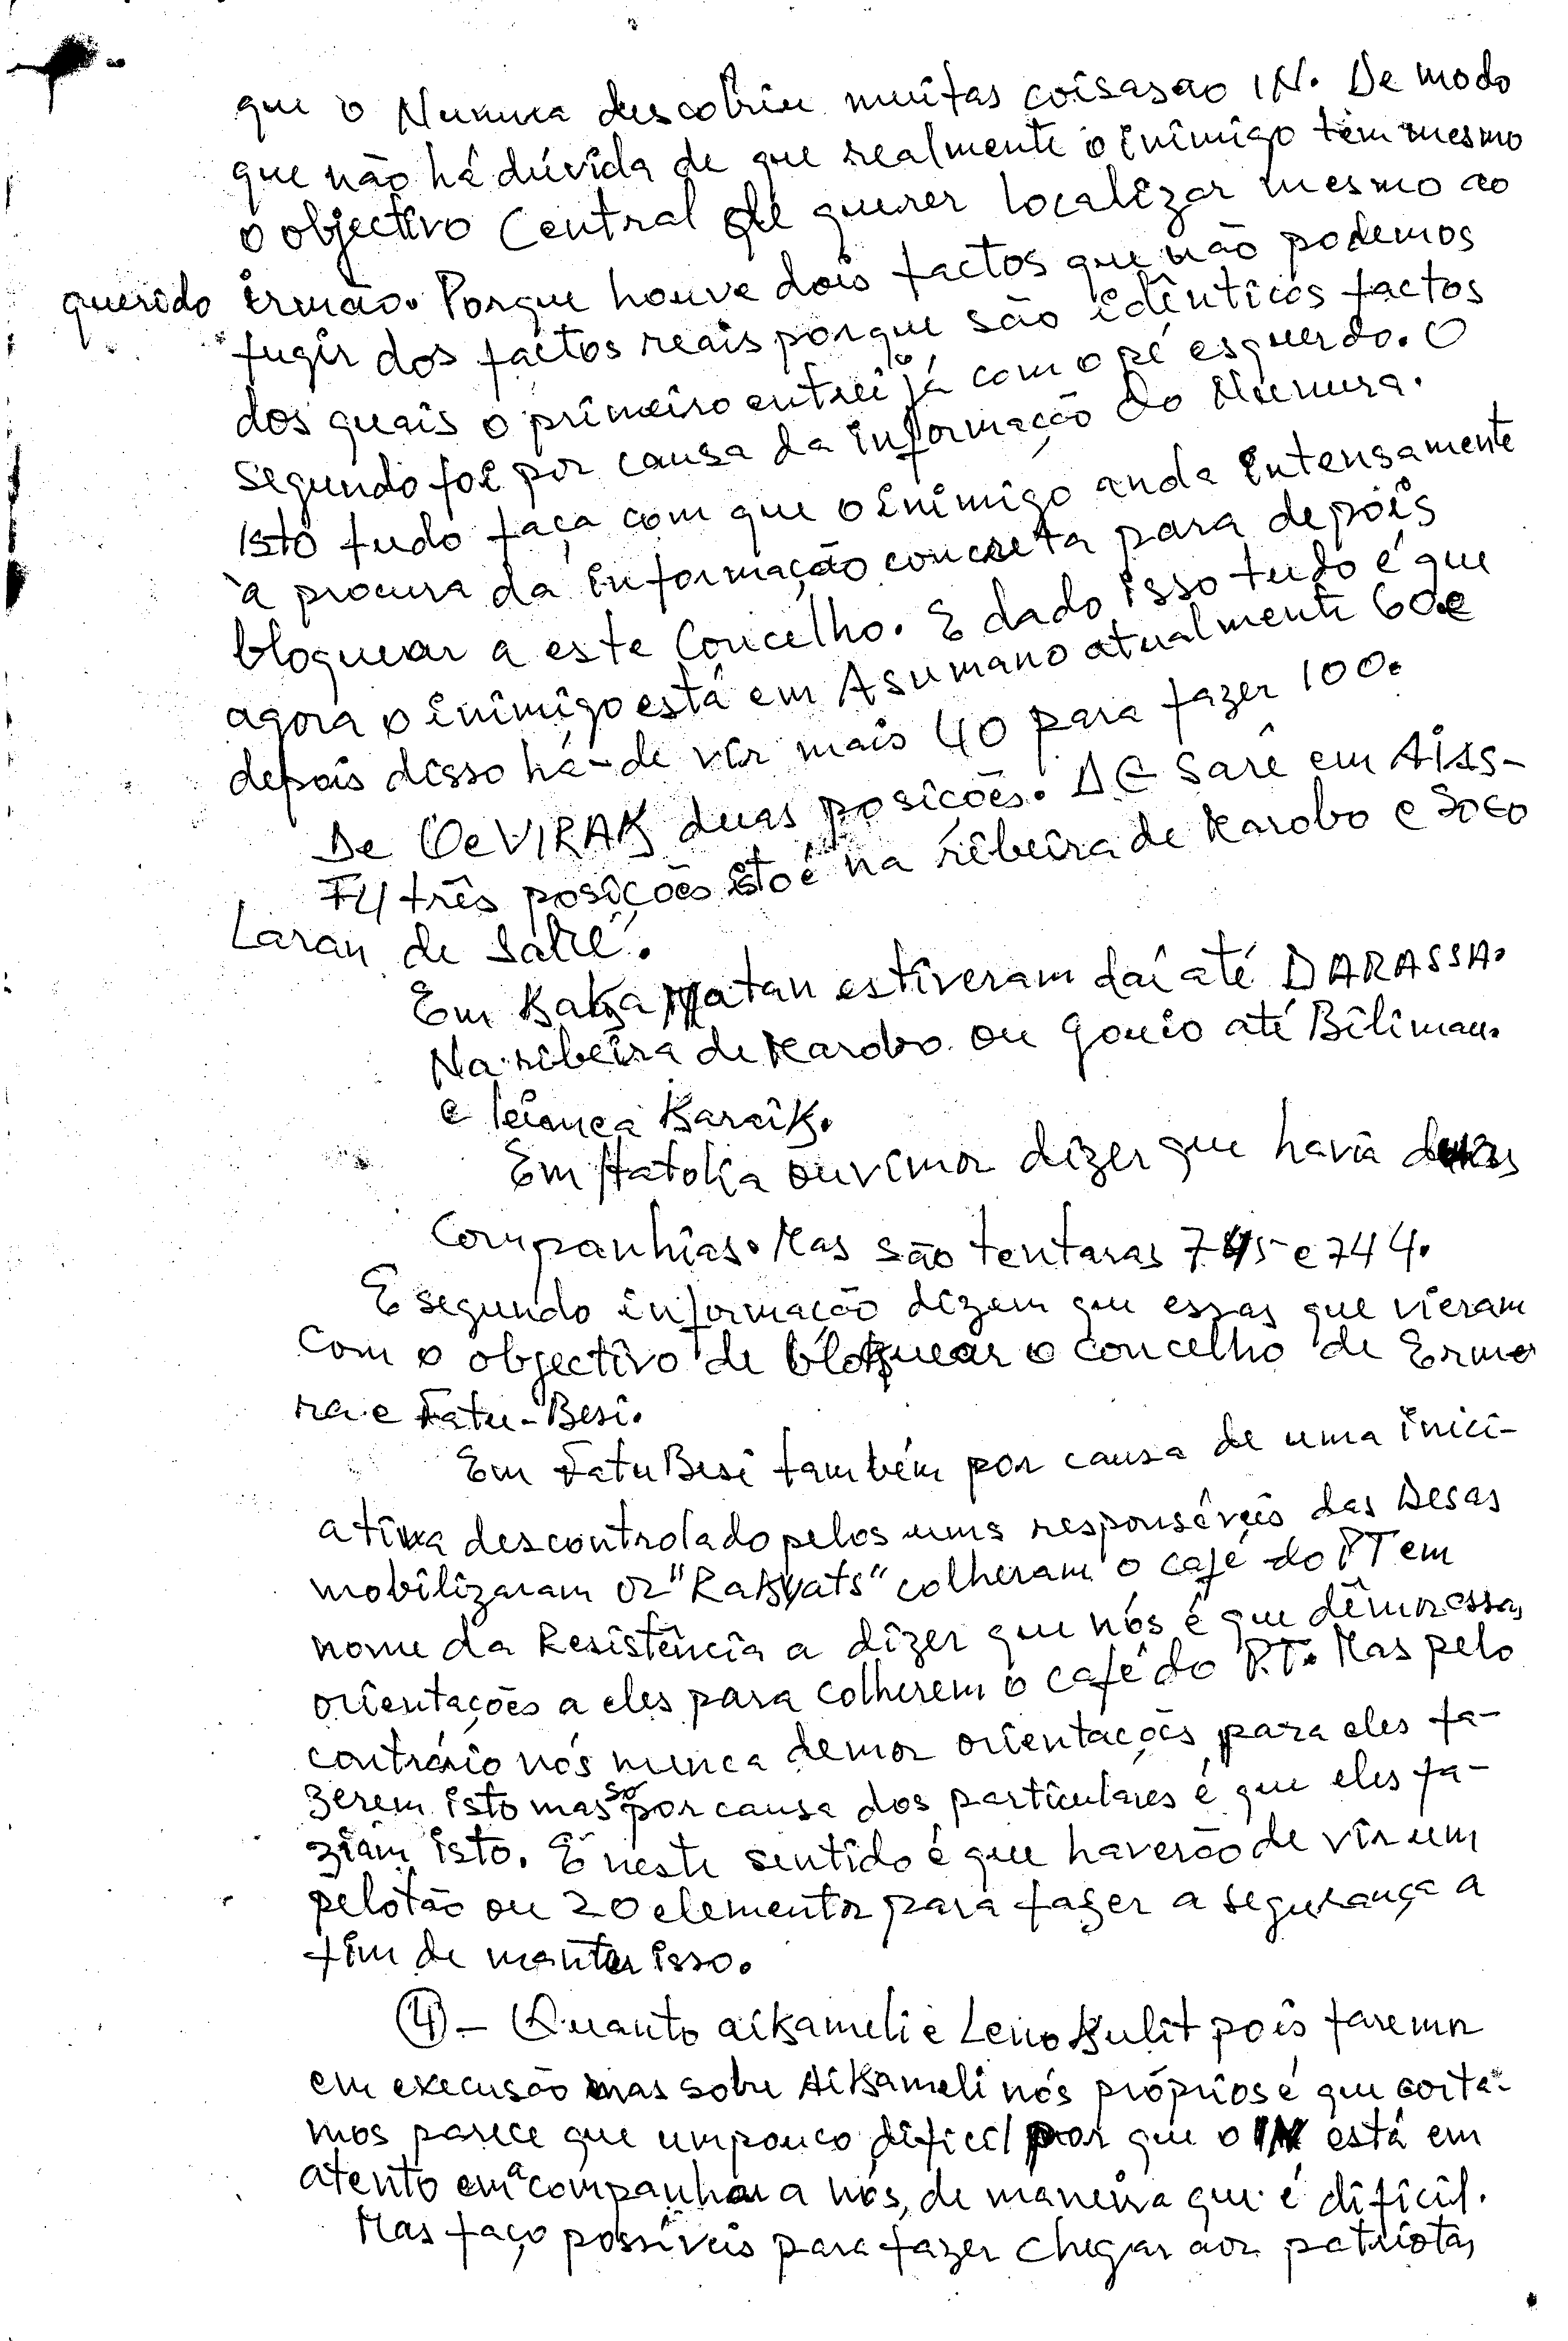 que o Numura descobriu muitas coisas ao IN. De modo
que não há dúvida de que realmente o inimigo tem mesmo
o objectivo Central de querer localizar mesmo ao
querido irmão. Porque houve dois factos que não podemos
fugir dos factos reais porque são idênticos factos
dos quais o primeiro entrei já com o pé esquerdo. O
segundo foi por causa da informação do Numura.
Isto tudo faça com que o inimigo anda intensamente
à procura da informação concreta para depois
bloquear a este Concelho. E dado isso tudo é que
agora o inimigo está em Asumano atualmente 60 e
depois disso há-de vir mais 40 para fazer 100.
De OeVIRAK duas posições. De Sarê em Aiss-
Fu três posições isto é na ribeira de Karobo e Soco
Laran de Sakré.
Em Baka Matan estiveram daí até DARASSA.
Na ribeira de Karobo ou Gouio até Biliman.
e Karaik.
Em Hatolia ouvimos dizer que havia duas
Companhias. Mas são tentaras 745 e 744.
E segundo informação dizem que essas que vieram
Com o objectivo de bloquear o concelho de Erme
ra e Fatu-Besi.
Em Fatu Besi também por causa de uma inici-
ativa descontrolado pelos uns responsáveis das Desas
mobilizaram os "Rakyats" colheram o café do PT em
nome da Resistência a dizer que nós é que dêmos essas
orientações a eles para colherem o café do P.T. Mas pelo
contrário nós nunca demos orientações para eles fa-
zerem isto mas só por causa dos particulares é que eles fa-
ziam isto. E neste sentido é que haverão de vir um
pelotão ou 20 elementos para fazer a segurança a
fim de manter isso.
(4) - Quanto aikameli e Leno Kulit pois faremos
em execusão mas sobre Aikameli nós próprios é que corta-
mos parece que um pouco difícil por que o IN está em
atento em acompanhar a nós, de maneira que é difícil.
Mas faço possíveis para fazer chegar aos patriotas